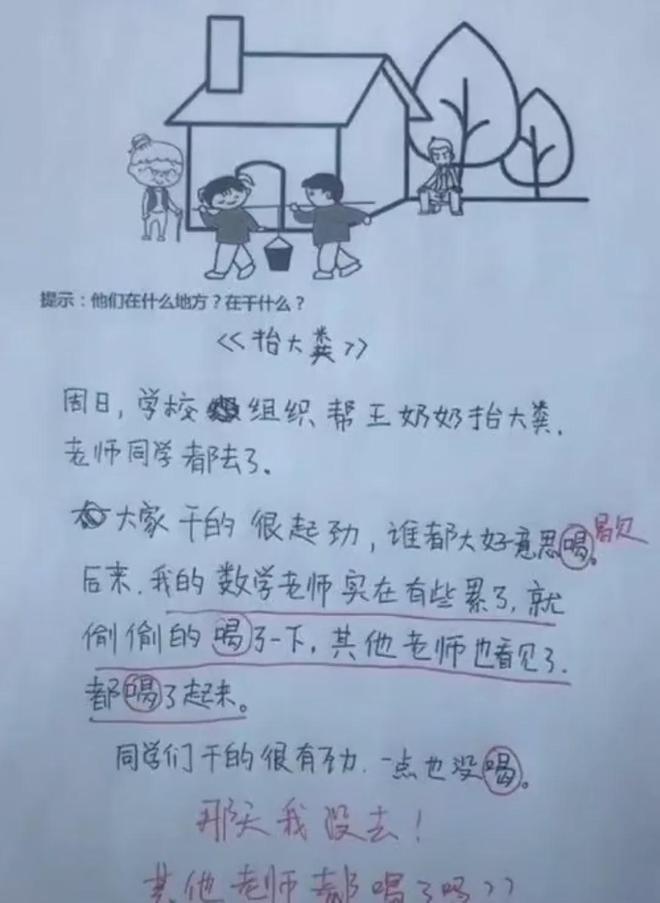 提示：他们在什么地方？在干什么？
《抬大粪》
周日，学校组织帮王奶奶抬大粪，
老师同学都去了。
大家干的很起劲，谁都大好意思喝。歇
后来，我的数学老师实在有些累了，就
偷偷的喝了一下，其他老师也看见了，
都喝了起来。
同学们干的很有劲，一点也没喝。
那天我没去！
其他老师都喝了吗??